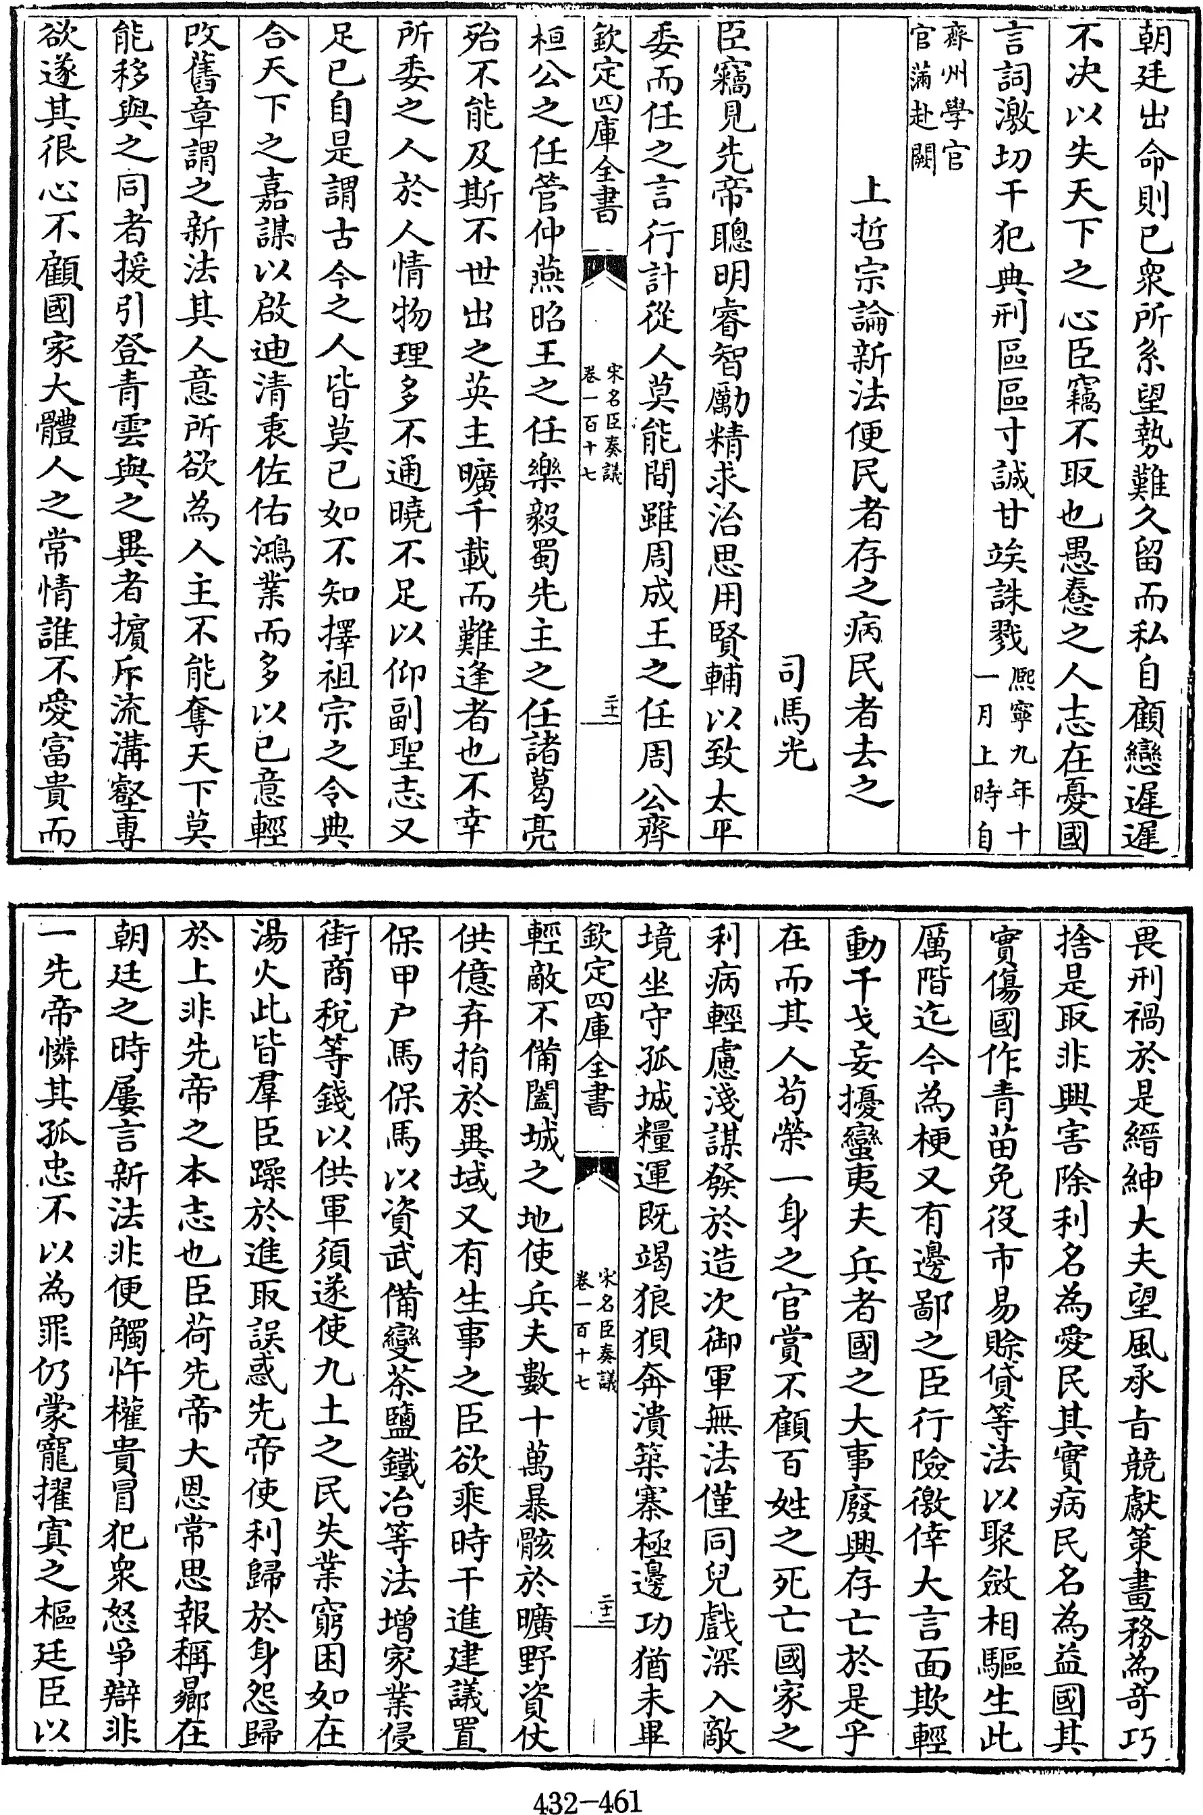 朝廷出命則已衆所系望勢難久留而私自顧戀遲遲
不决以失天下之心臣竊不取也愚惷之人志在憂國
言詞激切干犯典刑區區寸誠甘竢誅戮熈寧九年十
一月上時自
齊州學官
官滿赴闕
上哲宗論新法便民者存之病民者去之
司馬光
臣竊見先帝聰明睿智勵精求治思用賢輔以致太平
委而任之言行計從人莫能間雖周成王之任周公齊
欽定四庫全書
宋名臣奏議
卷一百十七
二十一
桓公之任管仲燕昭王之任樂毅蜀先主之任諸葛亮
殆不能及斯不世出之英主曠千載而難逢者也不幸
所委之人於人情物理多不通曉不足以仰副聖志又
足已自是謂古今之人皆莫已如不知擇祖宗之令典
合天下之嘉謀以啟迪清衷佐佑鴻業而多以已意輕
改舊章謂之新法其人意所欲為人主不能奪天下莫
能移與之同者援引登青雲與之異者擯斥流溝壑專
欲遂其很心不顧國家大體人之常情誰不愛富貴而
畏刑禍於是縉紳大夫望風承旨競獻策畫務為奇巧
捨是取非興害除利名為愛民其實病民名為益國其
實傷國作青苗免役市易賒貸等法以聚斂相驅生此
厲階迄今為梗又有邊鄙之臣行險徼倖大言面欺輕
動干戈妄擾蠻夷夫兵者國之大事廢興存亡於是乎
在而其人苟榮一身之官賞不顧百姓之死亡國家之
利病輕慮淺謀發於造次御軍無法僅同兒戲深入敵
境坐守孤城糧運既竭狼狽奔潰築寨極邊功猶未畢
欽定四庫全書
宋名臣奏議
卷一百十七
二十二
輕敵不備闔城之地使兵夫數十萬暴骸於曠野資仗
供億弃捐於異域又有生事之臣欲乘時干進建議置
保甲户馬保馬以資武備變茶鹽鐵冶等法增家業侵
街商稅等錢以供軍須遂使九土之民失業窮困如在
湯火此皆羣臣躁於進取誤惑先帝使利歸於身怨歸
於上非先帝之本志也臣荷先帝大恩常思報稱曏在
朝廷之時屢言新法非便觸忤權貴冒犯衆怒爭辯非
一先帝憐其孤忠不以為罪仍蒙寵擢寘之樞廷臣以
432-461